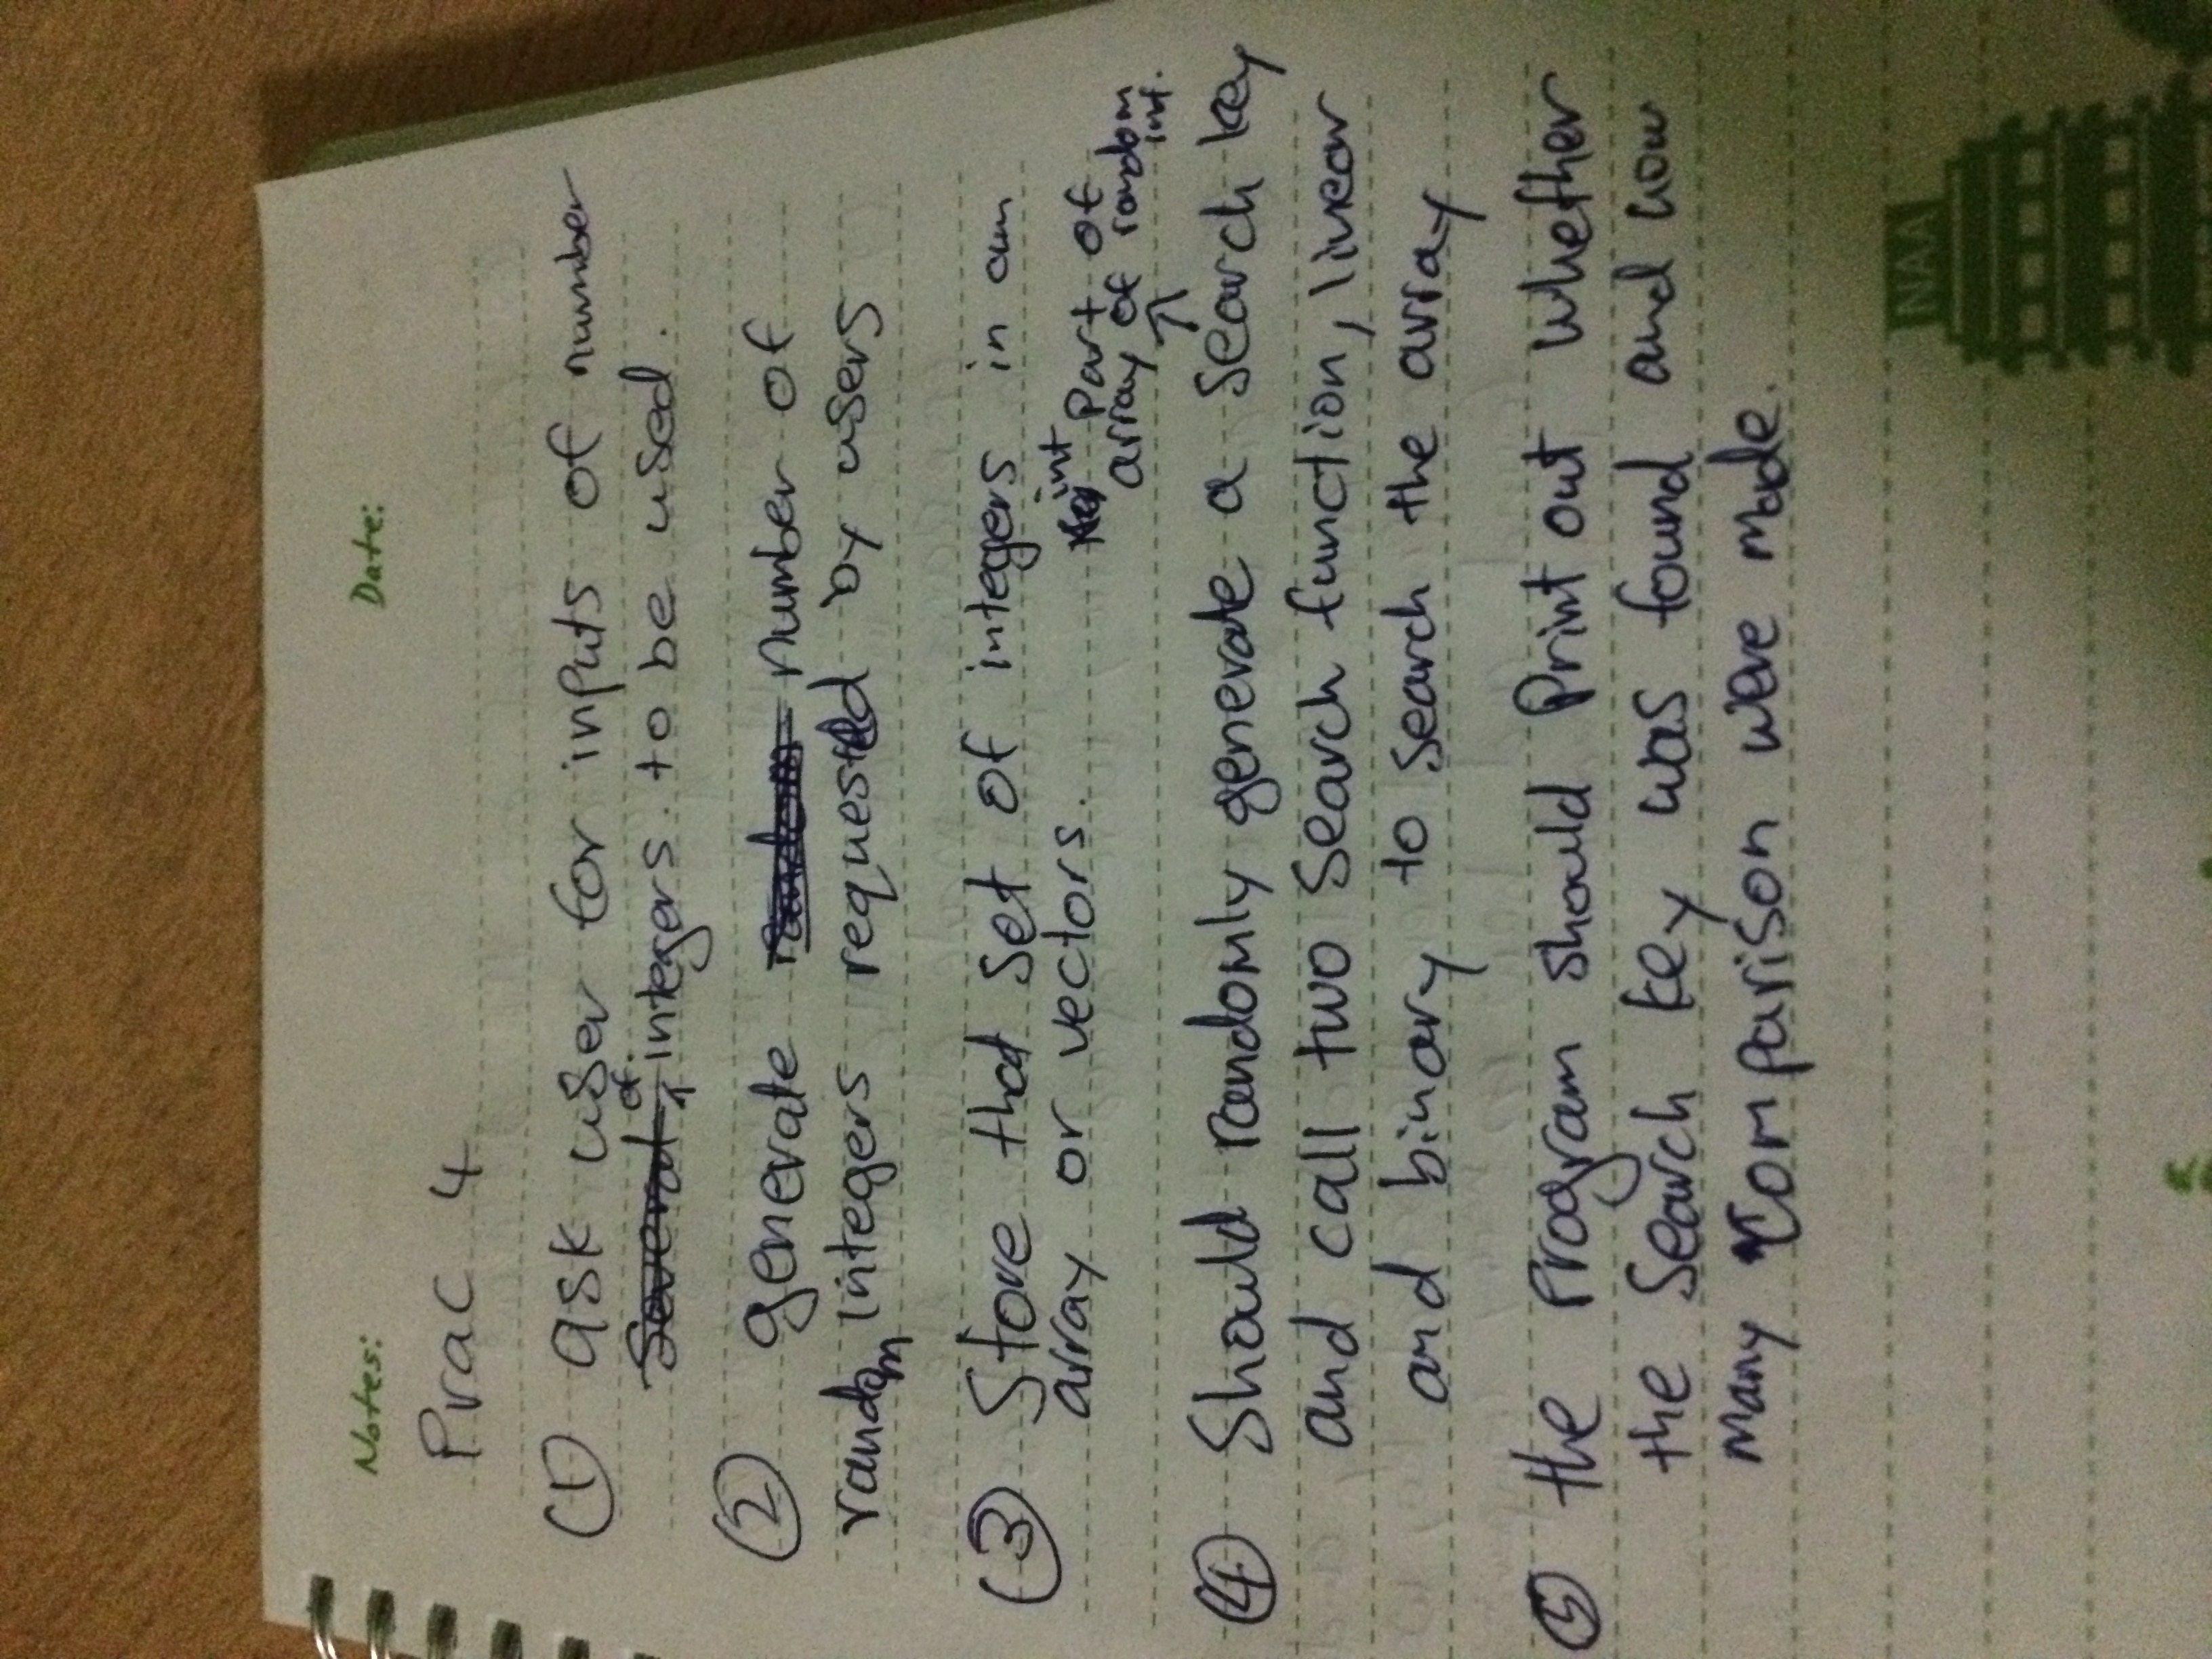 Notes: Date:
Prac 4
① ask user for inputs of number
Several of integers. to be used.
② generate random number of
random integers requested by users
③ Store that set of integers in an
array or vectors.
int Part of
array of random
int.
④ Should randomly generate a search key
and call two search function, linear
and binary to search the array
⑤ the Program should Print out whether
the Search key was found and how
many comparison were made.
NAA